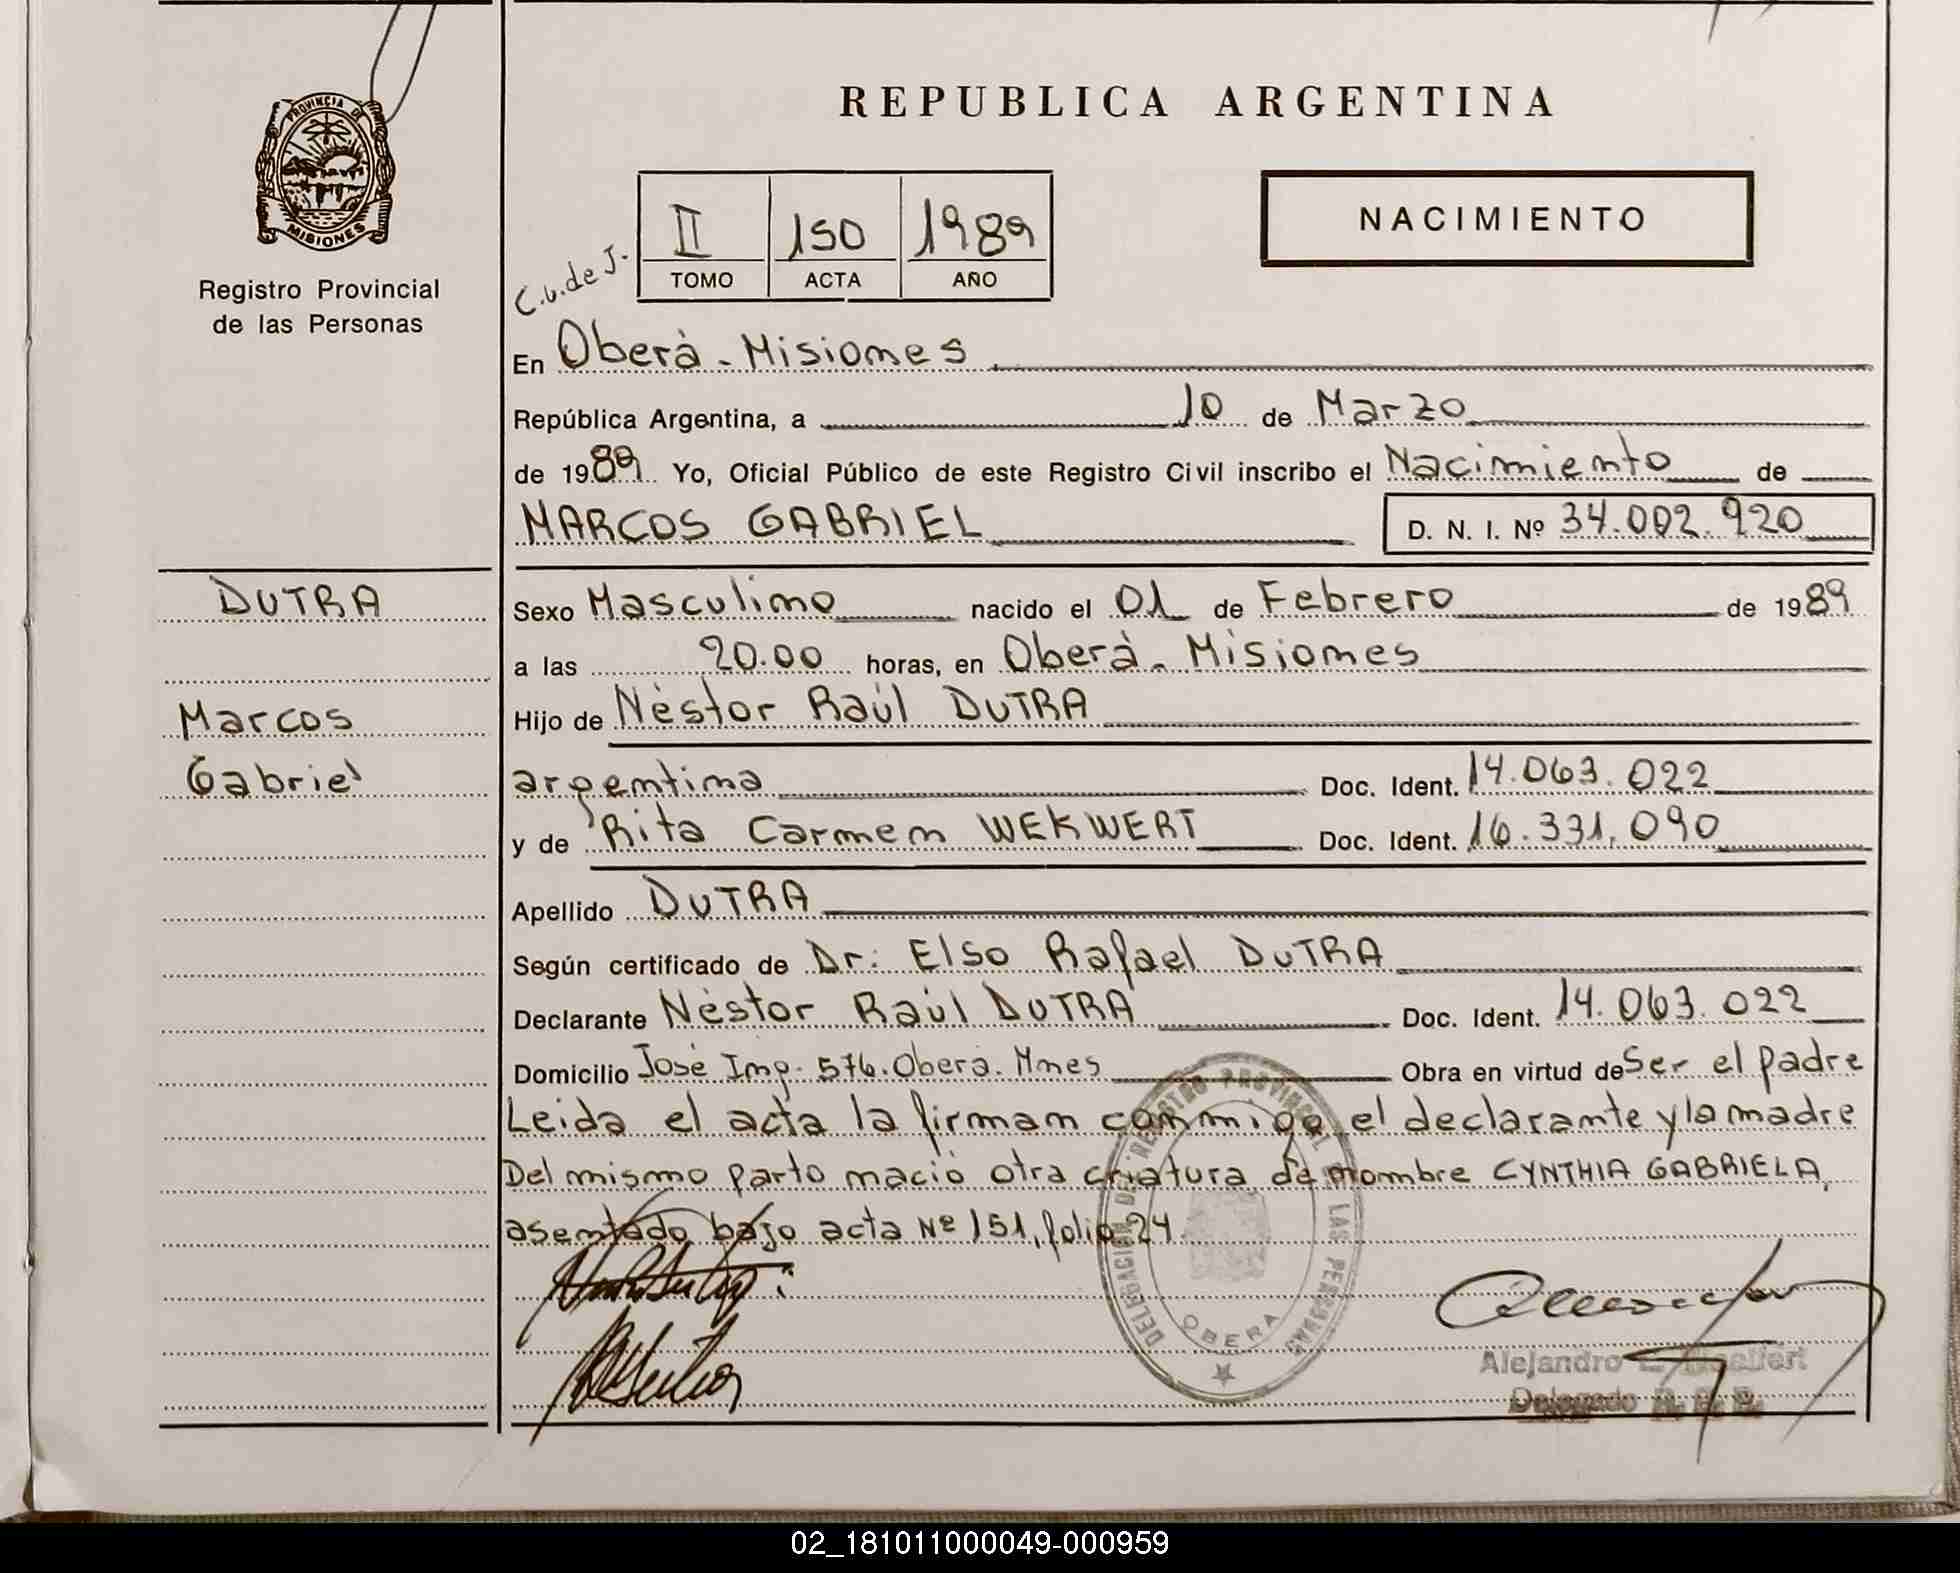 REPUBLICA ARGENTINA
PROVINCIA DE
MISIONES
Registro Provincial
de las Personas
NACIMIENTO
II 150 1989
TOMO ACTA AÑO
C.v.de J.
En Oberà - Misiones
República Argentina, a 10 de Marzo
de 1989 Yo, Oficial Público de este Registro Civil inscribo el Nacimiento de
MARCOS GABRIEL D. N. I. Nº 34.002.920
DUTRA
Marcos
Gabriel
Sexo Masculino nacido el 01 de Febrero de 1989
a las 20.00 horas, en Oberà - Misiones
Hijo de Nèstor Raúl DUTRA
argentina Doc. Ident. 14.063.022
y de Rita Carmen WEKWERT Doc. Ident. 16.331.090
Apellido DUTRA
Según certificado de Dr: Elso Rafael DUTRA
Declarante Nèstor Raúl DUTRA Doc. Ident. 14.063.022
Domicilio José Ing. 576. Oberà. Mnes Obra en virtud de Ser el padre
Leida el acta la firman conmigo el declarante y la madre
Del mismo parto nació otra criatura de nombre CYNTHIA GABRIELA,
asentado bajo acta Nº 151, folio 24
DELEGACION DEL REGISTRO PROVINCIAL DE LAS PERSONAS
OBERA
Alejandro
Delegado
02_181011000049-000959